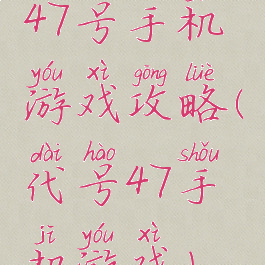 47号手机
yóu xì gōng lüè
游戏攻略(
dài hào shǒu
代号47手
jī yóu xì
机游戏)